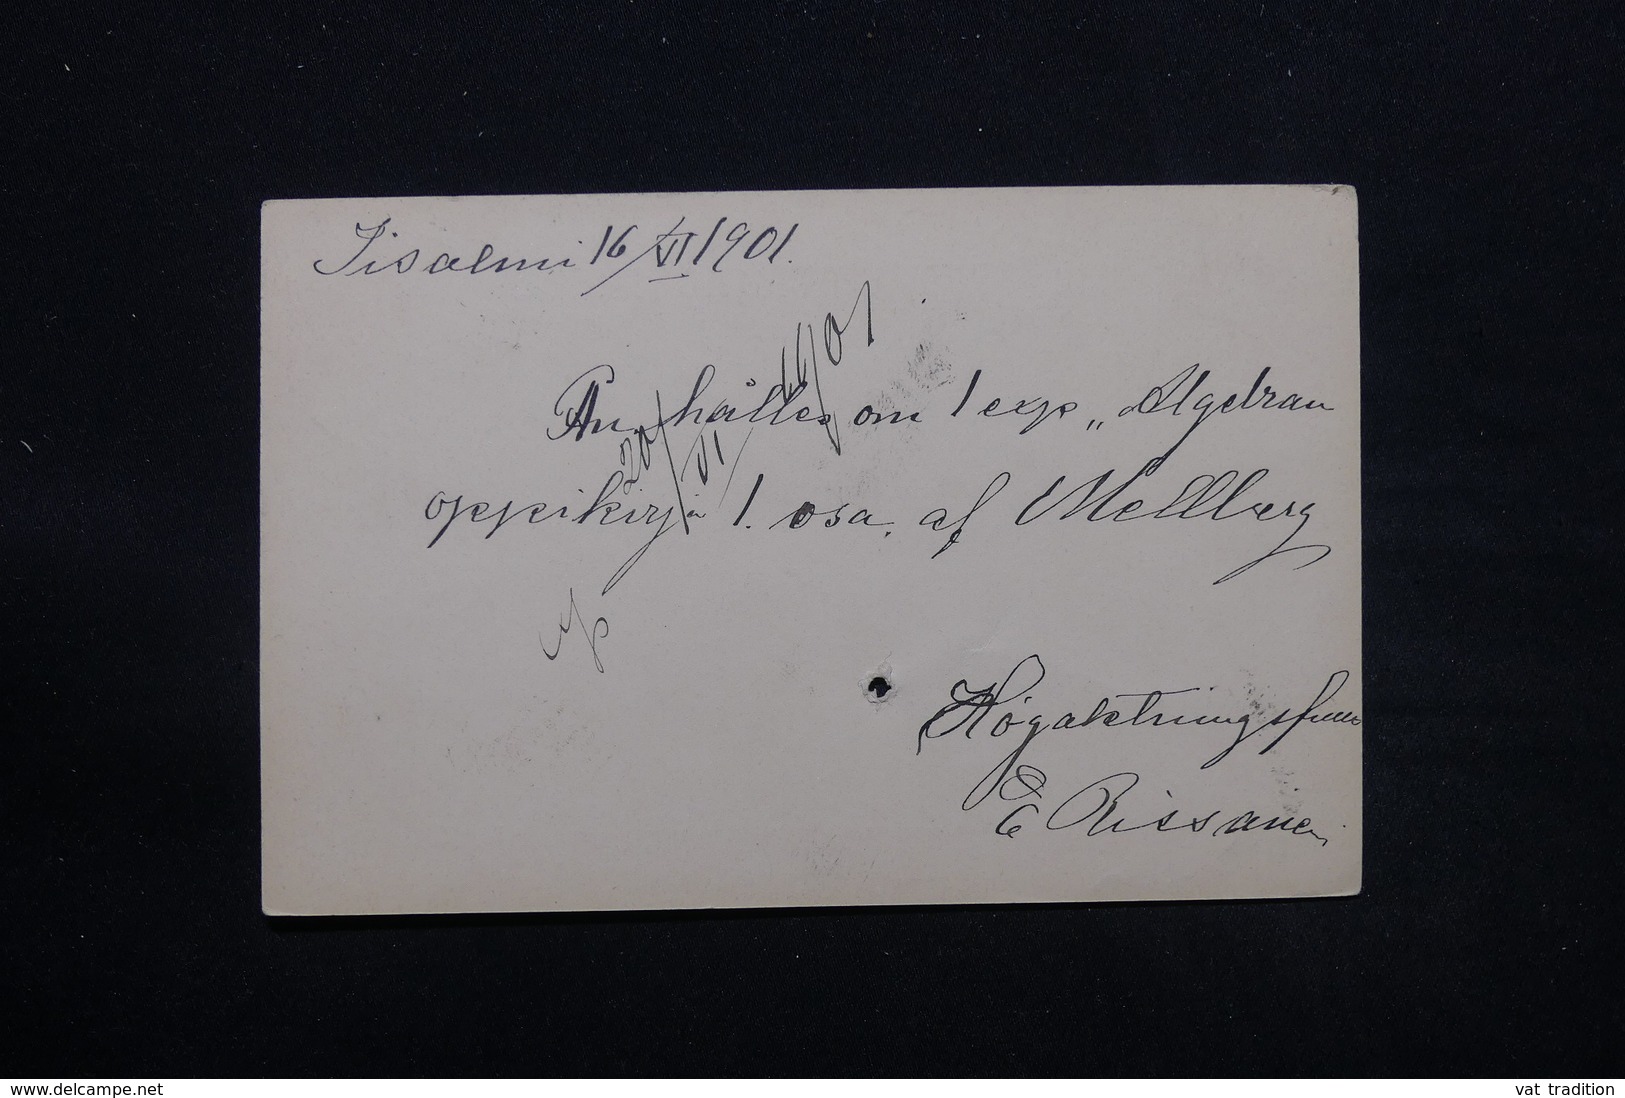 Iisalmi 16/XI 1901.
Anhålles om 1 exp „Algebran
oppikirja 1. osa. af Mellberg
20/XI 01
Högaktningsfullt
E Rissanen
www.delcampe.net
vat tradition